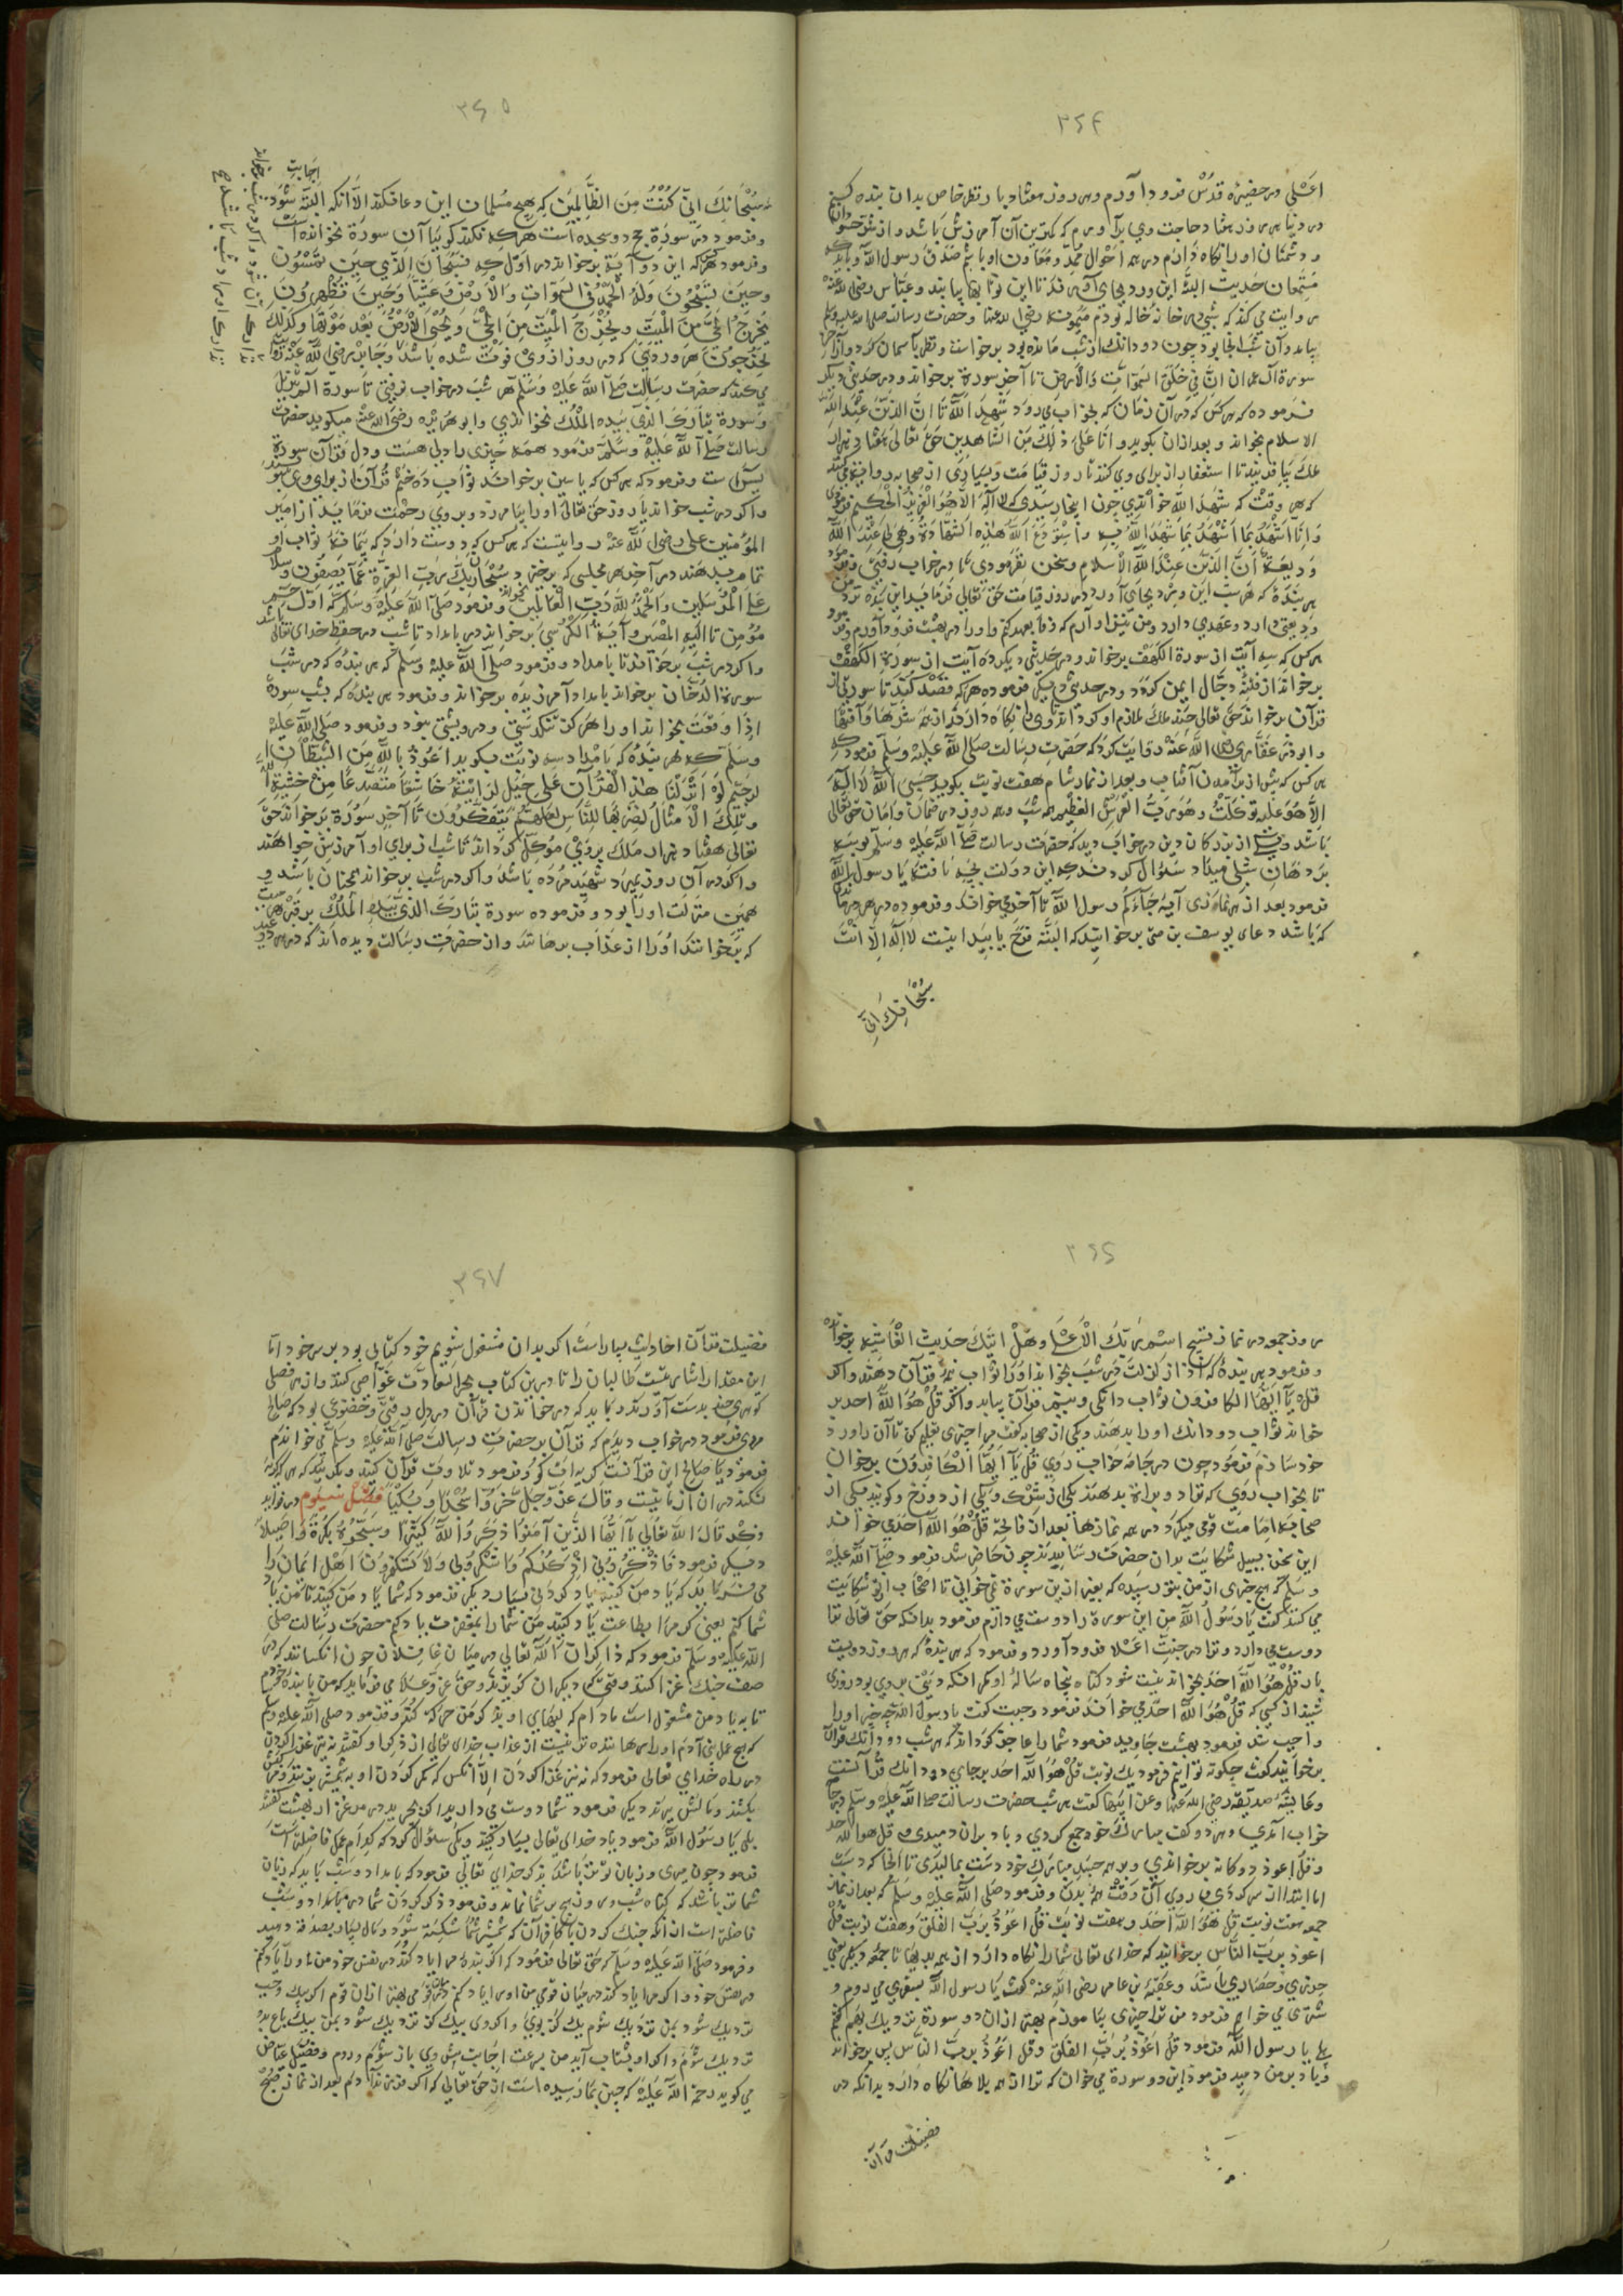 ۳۶۴
اعلی در حضیره قدس فرود آورم و هر روز هفتاد بار نظر خاص بدان بنده کنیم
در دنیا هر روز هفتاد حاجت وی برآورم که کمترین آن آمرزش باشد و از شر حسودان
و دشمنان او را نگاه دارم در همه احوال ممد و معاون او باشم صدق رسول الله و باید که
مستمعان حدیث البته این ورد بجای آورند تا این ثوابها بیابند و عباس رضی الله عنه
روایت می کند که شبی در خانه خاله خودم میمونه رضی الله عنها و حضرت رسالت صلی الله علیه وسلم
بیامد و آن شب آنجا بود چون دو دانک از شب مانده بود برخواست و نظر بآسمان کرد و از آخر
سورة آل عمران ان فی خلق السموات والارض تا آخر سورة برخواند و در حدیثی دیکر
فرموده که هر کس که در آن زمان که بخواب می رود شهد الله تا ان الدین عند الله
الاسلام بخواند و بعد از آن بکوید و انا علی ذلک من الشاهدین حق تعالی هفتاد هزار
ملک بیافریند تا استغفار از برای وی کنند تا روز قیامت و بسیاری از صحابه روایت می کنند
که هر وقت که شهد الله خواندی چون اینجا رسیدی که لا اله الا هو العزیز الحکیم فرمودی
و انا اشهد بما اشهد بما شهد الله به و استودع الله هذه الشهادة وهی لی عند الله
ودیعة ان الدین عند الله الاسلام و سخن نفرمودی تا در خواب رفتی
هر بنده که هر شب این ورد بجای آورد در روز قیامت حق تعالی فرماید این بنده نزد من
ودیعتی دارد و عهدی دارد و من سزاوارم که وفا بعهد کنم و او را در بهشت فرود آورم
هر کس که سه آیت از سورة الکهف برخواند و در حدیثی دیکر ده آیت از سورة الکهف
برخواند از فتنه دجال ایمن کردد و در حدیثی دیکر فرموده هر که قصد کند تا سورتی از
قرآن برخواند حق تعالی چند ملک ملازم او کرداند تا وی را نکاه دارند از همه شرها و آفتها
و ابو ذر غفاری رضی الله عنه روایت کرد که حضرت رسالت صلی الله علیه وسلم فرمود که
هر کس که پیش از برآمدن آفتاب و بعد از نماز شام هفت نوبت بکوید حسبی الله لا اله
الا هو علیه توکلت و هو رب العرش العظیم همه شب و همه روز در ضمان و امان حق تعالی
باشد و یکی از بزرکان دین در خواب دید که حضرت رسالت صلی الله علیه وسلم بوسه
بر دهان شبلی میداد سئوال کرد که این دولت بچه یافت یا رسول الله
فرمود بعد از هر نمازی آیة لقد جاءکم رسول الله تا آخر می خواند و فرموده در هر
که باشد دعای یونس بن متی برخوانید که البته فرح یابید اینست لا اله الا انت
سبحانک انی
۳۶۵
سبحانک انی کنت من الظالمین که هیچ مسلمان این دعا نکند الا آنکه البته اجابت شود
و فرمود در سورة حج دو سجده است هر که نکند کوییا آن سورة نخوانده است
و فرمود هر که این دو آیة برخواند در اول که فسبحان الله حین تمسون
وحین تصبحون وله الحمد فی السموات والارض وعشیا وحین تظهرون
یخرج الحی من المیت ویخرج المیت من الحی ویحیی الارض بعد موتها وکذلک
تخرجون هر وردی که در روز از وی فوت شده باشد و جابر رضی الله عنه روایت
می کند که حضرت رسالت صلی الله علیه وسلم هر شب در خواب نرفتی تا سورة الم تنزیل
و سورة تبارک الذی بیده الملک نخواندی و ابو هریره رضی الله عنه میکوید حضرت
رسالت صلی الله علیه وسلم فرمود همه چیزی را دلی هست و دل قرآن سورة
یس است و فرمود که هر کس که یاسین برخواند ثواب ده ختم قرآن از برای وی بنویسند
و اکر در شب خواند یا روز حق تعالی او را بیامرزد و بر وی رحمت فرماید از امیر
المؤمنین علی رضی الله عنه روایتست که هر کس که دوست دارد که پیمانه ثواب او
تمام بدهند در آخر هر مجلسی که برخیزد سبحان ربک رب العزة عما یصفون وسلام
علی المرسلین والحمد لله رب العالمین بخواند و فرمود صلی الله علیه وسلم که اول حم
مؤمن تا الیه المصیر و آیة الکرسی برخواند در بامداد تا شب در حفظ خدای تعالی باشد
و اکر در شب برخواند تا بامداد و فرمود صلی الله علیه وسلم که هر بنده که در شب
سورة الدخان برخواند بامداد آمرزیده برخیزد و فرمود هر بنده که بشب سورة
اذا وقعت بخواند او را هرکز تنکدستی و درویشی نبود و فرمود صلی الله علیه
وسلم که هر بنده که بامداد سه نوبت بکوید اعوذ بالله من الشیطان
الرجیم لو انزلنا هذا القرآن علی جبل لرایته خاشعا متصدعا من خشیة الله
وتلک الامثال نضربها للناس لعلهم یتفکرون تا آخر سورة برخواند حق
تعالی هفتاد هزار ملک بر وی موکل کرداند تا شب از برای او آمرزش خواهند
و اکر در آن روز بمیرد شهید مرده باشد و اکر در شب برخواند همچنان باشد و
همین منزلت او را بود و فرموده سورة تبارک الذی بیده الملک بر قبر هر میت
که بخوانند او را از عذاب برهانند و از حضرت رسالت دیده اند که در هر دو عید
۳۶۶
روز جمعه در نماز سبح اسم ربک الاعلی و هل اتیک حدیث الغاشیه برخواند
و فرمود هر بنده که اذا زلزلت در شب بخواند او را ثواب نیمه قرآن دهند و اکر
قل یا ایها الکافرون ثواب دانکی و نیم قرآن بیابد و اکر قل هو الله احد بر
خواند ثواب دو دانک او را بدهند و یکی از صحابه کفت مرا چیزی تعلیم کن تا آن را ورد
خود سازم فرمود چون در جامه خواب روی قل یا ایها الکافرون برخوان
تا بخواب روی که ترا دو برائة بدهند یکی از شرک و یکی از دوزخ و کویند یکی از
صحابه امامت قومی میکرد و در همه نمازها بعد از فاتحه قل هو الله احد می خواند
این سخن بسبیل شکایت بدان حضرت رسانیدند چون حاضر شد فرمود صلی الله علیه
وسلم که هیچ چیزی از من بتو رسیده که بغیر ازین سورة نمی خوانی تا اصحاب از تو شکایت
می کنند کفت یا رسول الله من این سورة را دوست می دارم فرمود بدانکه حق تعالی ترا
دوست می دارد و ترا در جنت اعلا فرود آورد و فرمود که هر بنده که هر روز دویست
بار قل هو الله احد بخواند نیست شود کناه پنجاه ساله او مکر آنکه دینی بر وی بود روزی
شنید از کسی که قل هو الله احد می خواند فرمود وجبت کفت یا رسول الله چه چیز او را
واجب شد فرمود بهشت جاوید فرمود شما را عاجز کرداند که هر شب دو دانک قرآن
برخوانید کفت چکونه توانیم فرمود یک نوبت قل هو الله احد بر جای دو دانک قرآنست
و عایشه صدیقه رضی الله عنها و عن ابیها کفت هر شب حضرت رسالت صلی الله علیه وسلم در جا
خواب آمدی و هر دو کف مبارک خود جمع کردی و باد بر آن دمیدی و قل هو الله احد
و قل اعوذ دوکانه برخواندی و بر همه جسد مبارک خود دست بمالیدی تا آنجا که دست
اما ابتدا از سر کردی و روی آنکه رفت همه بدن و فرمود صلی الله علیه وسلم که بعد از نماز
جمعه هفت نوبت قل هو الله احد و هفت نوبت قل اعوذ برب الفلق و هفت نوبت قل
اعوذ برب الناس برخوانید که خدای تعالی شما را نکاه دارد از همه بدیها تا جمعه دیکر یعنی
حرزی و حصاری باشد و عقبة بن عامر رضی الله عنه کفت یا رسول الله بسفری می روم و
شرّی می خواهم فرمود من ترا چیزی بیاموزم بهتر ازان دو سورة نزدیک بفهم کفتم
بلی یا رسول الله فرمود قل اعوذ برب الفلق وقل اعوذ برب الناس پس برخواند
و باد بر من دمید فرمود این دو سورة می خوان که ترا از همه بلاها نکاه دارد بدانکه در
فضیلت قرآن
۳۶۷
فضیلت قرآن احادیث بسیار است اکر بدان مشغول شویم خود کتابی بود بر سر خود اما
این مقدار اشارتیست طالبان را تا درین کتاب بحر السعادت غواصی کنند و از هر فصلی
کوهری بدست آورند و باید که در خواندن قرآن در دل رقتی و خضوعی بود که صالح
مری فرمود در خواب دیدم که قرآن بر حضرت رسالت صلی الله علیه وسلم می خواندم
فرمود یا صالح این قرآنست کریه ات کو و فرمود تلاوت قرآن کنید و بکریید که هر که کریه
نکند در آن از ما نیست و قال عز وجل خروا سجدا وبکیا فصل سیوم در فواید
ذکر قال الله تعالی یا ایها الذین آمنوا اذکروا الله ذکرا کثیرا وسبحوه بکرة واصیلا
و دیکر فرمود فاذکرونی اذکرکم واشکروا لی ولا تکفرون اهل ایمان را
می فرماید که یاد من کنید یاد کردنی بسیار دیکر فرمود که شما یاد من کنید تا من یاد
شما کنم یعنی که مرا بطاعت یاد کنید من شما را بمغفرت یاد کنم حضرت رسالت صلی
الله علیه وسلم فرمود که ذاکران الله تعالی در میان غافلان چون آنکسانند که در
صف جنک غزا کنند وقتی که دیکران کریزند و حق عز و علا می فرماید که من با بنده خودم
تا به یاد من مشغول است مادام که لبهای او بذکر من حرکت کند و فرمود صلی الله علیه وسلم
که هیچ عمل بنی آدم او را رهاننده تر نیست از عذاب خدای تعالی از ذکر او کفتند نه نیز غزا کردن
در راه خدای تعالی فرمود که نه نیز غزا کردن الا آنکس که کردن او به شمشیر بزنند و مر کبش
بکشند و مالش ببرند دیکر فرمود شما دوست می دارید که بچرید در مرغزار بهشت کفتند
بلی یا رسول الله فرمود یاد خدای تعالی بسیار کنید و یکی سئوال کرد که کدام عمل فاضلتر است
فرمود چون میری و زبان تو تر باشد بذکر خدای تعالی فرمود که بامداد و شب باید که زبان
شما تر باشد که کناه شب و روز هیچ بر شما نماند و فرمود ذکر کردن شما در بامداد و شب
فاضلتر است از آنکه جنک کردن با کافران که شمشیر شما شکسته شود و مال بسیار بصدقه دهید
و فرمود صلی الله علیه وسلم که حق تعالی فرمود که اکر بنده مرا یاد کند در نفس خود من او را یاد کنم
در نفس خود و اکر مرا یاد کند در میان قومی من او را یاد کنم در میان قومی بهتر ازان قوم اکر بیک وجب
نزدیک شود بمن نزدیک شوم بیک کز بوی و اکر وی بیک کز نزدیک شود بمن بیک باع بدو
نزدیک شوم و اکر او بشتاب آید من بسرعت اجابت پیش وی باز شوم و روم و فضیل عیاض
می کوید رحمة الله علیه که چنین بما رسیده است از حق تعالی که اکر فرزند آدم بعد از نماز صبح